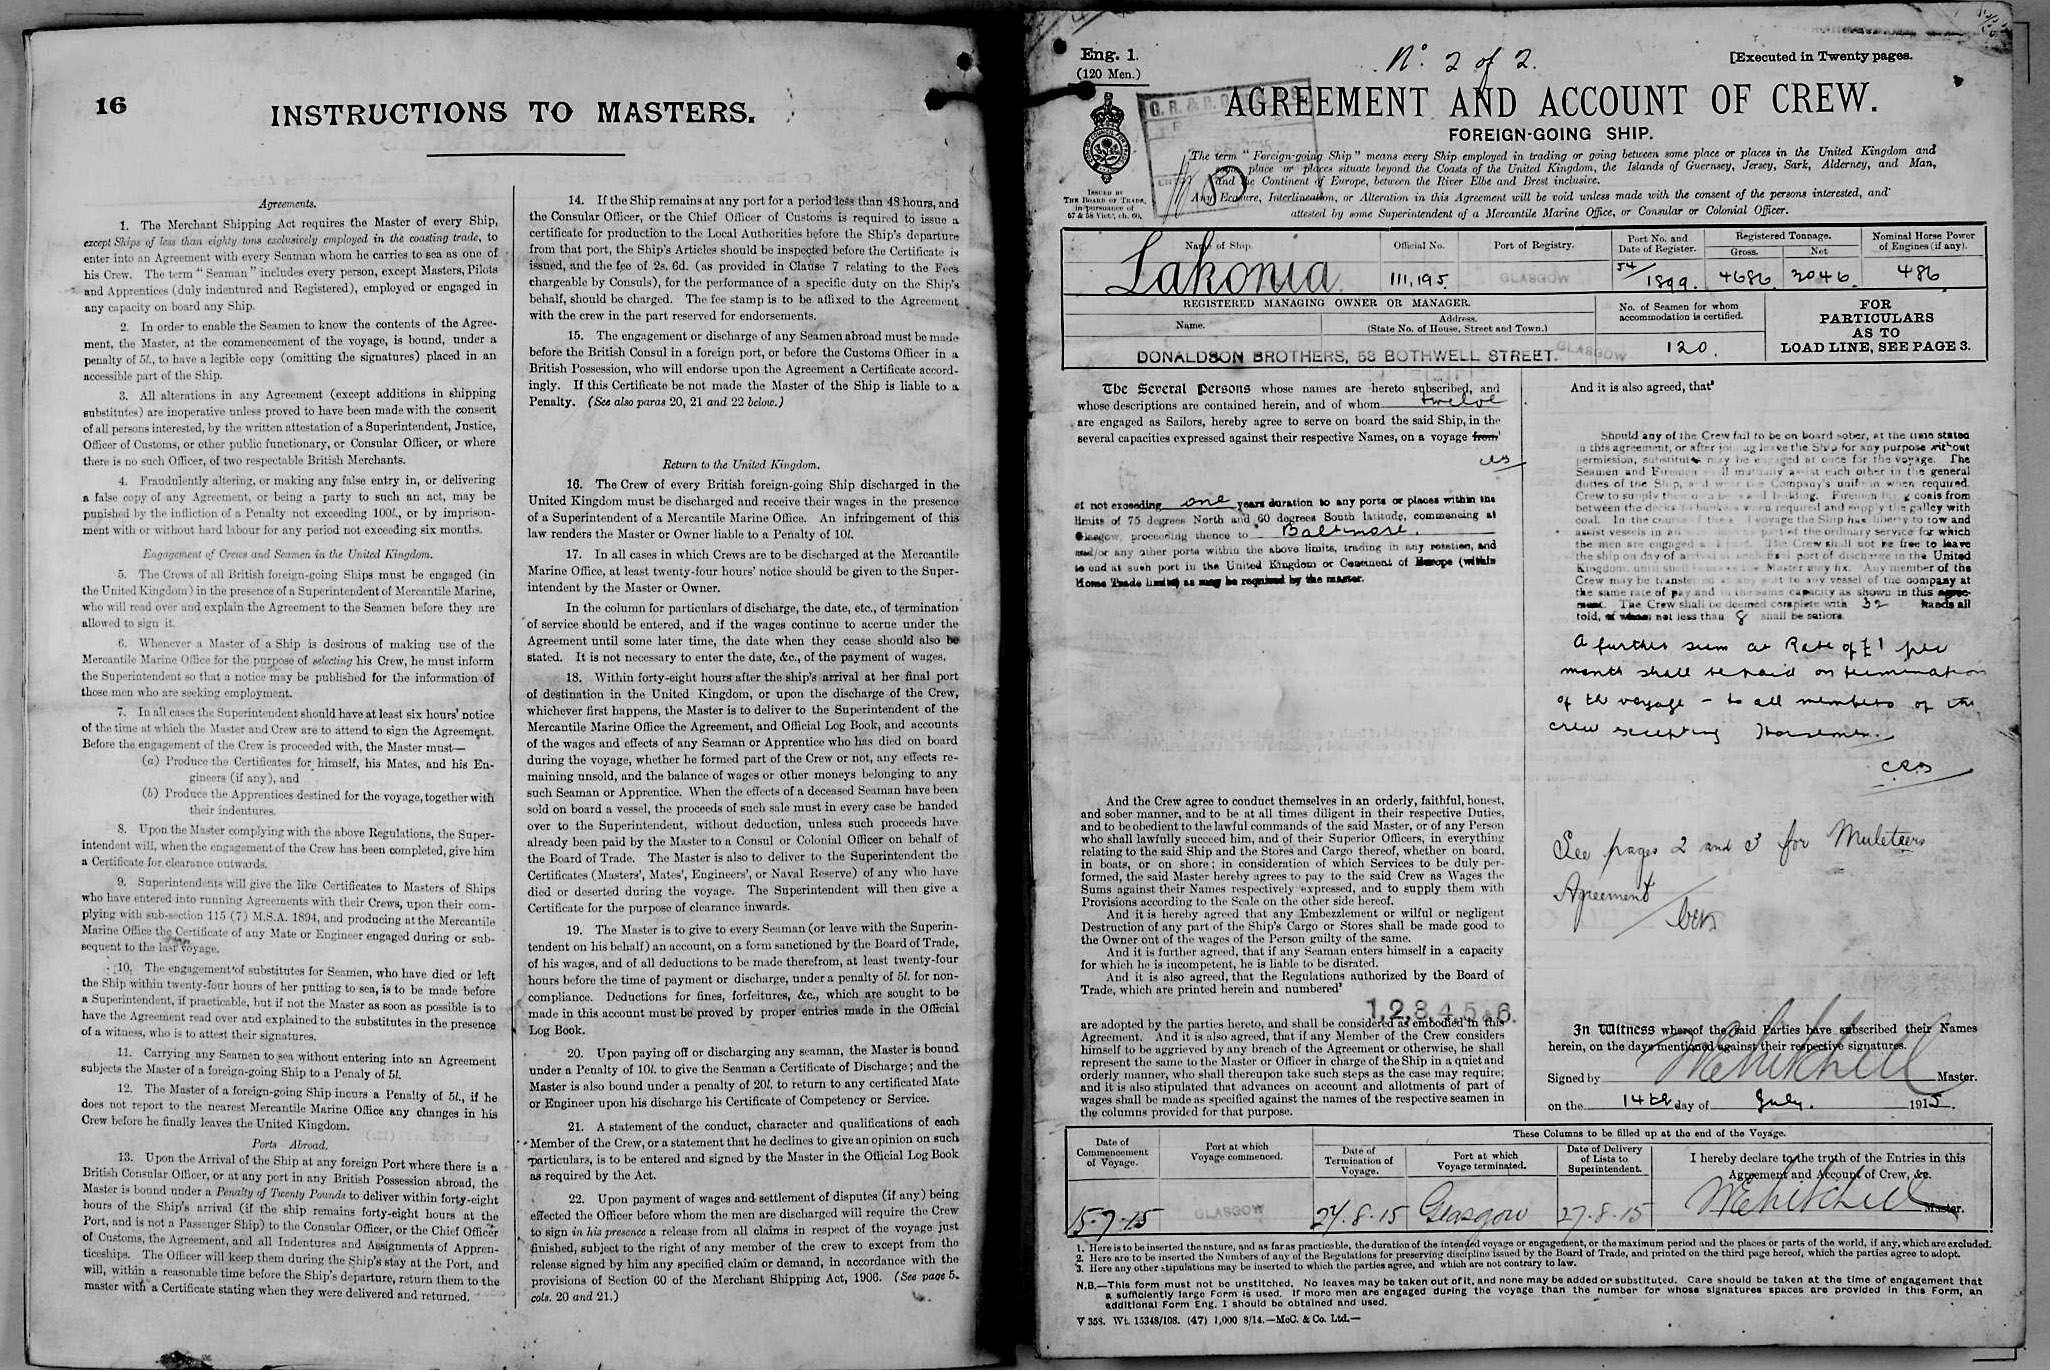 16
INSTRUCTIONS TO MASTERS.
Agreements.
1. The Merchant Shipping Act requires the Master of every Ship,
except Ships of less than eighty tons exclusively employed in the coasting trade, to
enter into an Agreement with every Seaman whom he carries to sea as one of
his Crew. The term "Seaman" includes every person, except Masters, Pilots
and Apprentices (duly indentured and Registered), employed or engaged in
any capacity on board any Ship.
2. In order to enable the Seamen to know the contents of the Agree-
ment, the Master, at the commencement of the voyage, is bound, under a
penalty of 5l., to have a legible copy (omitting the signatures) placed in an
accessible part of the Ship.
3. All alterations in any Agreement (except additions in shipping
substitutes) are inoperative unless proved to have been made with the consent
of all persons interested, by the written attestation of a Superintendent, Justice,
Officer of Customs, or other public functionary, or Consular Officer, or where
there is no such Officer, of two respectable British Merchants.
4. Fraudulently altering, or making any false entry in, or delivering
a false copy of any Agreement, or being a party to such an act, may be
punished by the infliction of a Penalty not exceeding 100l., or by imprison-
ment with or without hard labour for any period not exceeding six months.
Engagement of Crews and Seamen in the United Kingdom.
5. The Crews of all British foreign-going Ships must be engaged (in
the United Kingdom) in the presence of a Superintendent of Mercantile Marine,
who will read over and explain the Agreement to the Seamen before they are
allowed to sign it.
6. Whenever a Master of a Ship is desirous of making use of the
Mercantile Marine Office for the purpose of selecting his Crew, he must inform
the Superintendent so that a notice may be published for the information of
those men who are seeking employment.
7. In all cases the Superintendent should have at least six hours' notice
of the time at which the Master and Crew are to attend to sign the Agreement.
Before the engagement of the Crew is proceeded with, the Master must—
(a) Produce the Certificates for himself, his Mates, and his En-
gineers (if any), and
(b) Produce the Apprentices destined for the voyage, together with
their indentures.
8. Upon the Master complying with the above Regulations, the Super-
intendent will, when the engagement of the Crew has been completed, give him
a Certificate for clearance outwards.
9. Superintendents will give the like Certificates to Masters of Ships
who have entered into running Agreements with their Crews, upon their com-
plying with sub-section 115 (7) M.S.A. 1894, and producing at the Mercantile
Marine Office the Certificate of any Mate or Engineer engaged during or sub-
sequent to the last voyage.
10. The engagement of substitutes for Seamen, who have died or left
the Ship within twenty-four hours of her putting to sea, is to be made before
a Superintendent, if practicable, but if not the Master as soon as possible is to
have the Agreement read over and explained to the substitutes in the presence
of a witness, who is to attest their signatures.
11. Carrying any Seamen to sea without entering into an Agreement
subjects the Master of a foreign-going Ship to a Penaly of 5l.
12. The Master of a foreign-going Ship incurs a Penalty of 5l., if he
does not report to the nearest Mercantile Marine Office any changes in his
Crew before he finally leaves the United Kingdom.
Ports Abroad.
13. Upon the Arrival of the Ship at any foreign Port where there is a
British Consular Officer, or at any port in any British Possession abroad, the
Master is bound under a Penalty of Twenty Pounds to deliver within forty-eight
hours of the Ship's arrival (if the ship remains forty-eight hours at the
Port, and is not a Passenger Ship) to the Consular Officer, or the Chief Officer
of Customs, the Agreement, and all Indentures and Assignments of Appren-
ticeships. The Officer will keep them during the Ship's stay at the Port, and
will, within a reasonable time before the Ship's departure, return them to the
master with a Certificate stating when they were delivered and returned.
14. If the Ship remains at any port for a period less than 48 hours, and
the Consular Officer, or the Chief Officer of Customs is required to issue a
certificate for production to the Local Authorities before the Ship's departure
from that port, the Ship's Articles should be inspected before the Certificate is
issued, and the fee of 2s. 6d. (as provided in Clause 7 relating to the Fees
chargeable by Consuls), for the performance of a specific duty on the Ship's
behalf, should be charged. The fee stamp is to be affixed to the Agreement
with the crew in the part reserved for endorsements.
15. The engagement or discharge of any Seamen abroad must be made
before the British Consul in a foreign port, or before the Customs Officer in a
British Possession, who will endorse upon the Agreement a Certificate accord-
ingly. If this Certificate be not made the Master of the Ship is liable to a
Penalty. (See also paras 20, 21 and 22 below.)
Return to the United Kingdom.
16. The Crew of every British foreign-going Ship discharged in the
United Kingdom must be discharged and receive their wages in the presence
of a Superintendent of a Mercantile Marine Office. An infringement of this
law renders the Master or Owner liable to a Penalty of 10l.
17. In all cases in which Crews are to be discharged at the Mercantile
Marine Office, at least twenty-four hours' notice should be given to the Super-
intendent by the Master or Owner.
In the column for particulars of discharge, the date, etc., of termination
of service should be entered, and if the wages continue to accrue under the
Agreement until some later time, the date when they cease should also be
stated. It is not necessary to enter the date, &c., of the payment of wages.
18. Within forty-eight hours after the ship's arrival at her final port
of destination in the United Kingdom, or upon the discharge of the Crew,
whichever first happens, the Master is to deliver to the Superintendent of the
Mercantile Marine Office the Agreement, and Official Log Book, and accounts
of the wages and effects of any Seaman or Apprentice who has died on board
during the voyage, whether he formed part of the Crew or not, any effects re-
maining unsold, and the balance of wages or other moneys belonging to any
such Seaman or Apprentice. When the effects of a deceased Seaman have been
sold on board a vessel, the proceeds of such sale must in every case be handed
over to the Superintendent, without deduction, unless such proceeds have
already been paid by the Master to a Consul or Colonial Officer on behalf of
the Board of Trade. The Master is also to deliver to the Superintendent the
Certificates (Masters', Mates', Engineers', or Naval Reserve) of any who have
died or deserted during the voyage. The Superintendent will then give a
Certificate for the purpose of clearance inwards.
19. The Master is to give to every Seaman (or leave with the Superin-
tendent on his behalf) an account, on a form sanctioned by the Board of Trade,
of his wages, and of all deductions to be made therefrom, at least twenty-four
hours before the time of payment or discharge, under a penalty of 5l. for non-
compliance. Deductions for fines, forfeitures, &c., which are sought to be
made in this account must be proved by proper entries made in the Official
Log Book.
20. Upon paying off or discharging any seaman, the Master is bound
under a Penalty of 10l. to give the Seaman a Certificate of Discharge; and the
Master is also bound under a penalty of 20l. to return to any certificated Mate
or Engineer upon his discharge his Certificate of Competency or Service.
21. A statement of the conduct, character and qualifications of each
Member of the Crew, or a statement that he declines to give an opinion on such
particulars, is to be entered and signed by the Master in the Official Log Book
as required by the Act.
22. Upon payment of wages and settlement of disputes (if any) being
effected the Officer before whom the men are discharged will require the Crew
to sign in his presence a release from all claims in respect of the voyage just
finished, subject to the right of any member of the crew to except from the
release signed by him any specified claim or demand, in accordance with the
provisions of Section 60 of the Merchant Shipping Act, 1906. (See page 5.
cols. 20 and 21.)
Eng. 1.
(120 Men.)
No. 2 of 2.
[Executed in Twenty pages.
AGREEMENT AND ACCOUNT OF CREW.
FOREIGN-GOING SHIP.
ISSUED BY
THE BOARD OF TRADE,
in pursuance of
57 & 58 Vict., ch. 60.
The term "Foreign-going Ship" means every Ship employed in trading or going between some place or places in the United Kingdom and
some place or places situate beyond the Coasts of the United Kingdom, the Islands of Guernsey, Jersey, Sark, Alderney, and Man,
and the Continent of Europe, between the River Elbe and Brest inclusive.
Any Erasure, Interlineation, or Alteration in this Agreement will be void unless made with the consent of the persons interested, and
attested by some Superintendent of a Mercantile Marine Office, or Consular or Colonial Officer.
Name of Ship. Official No. Port of Registry. Port No. and Date of Register. Registered Tonnage. Gross. Net Nominal Horse Power of Engines (if any).
Lakonia 111,195. GLASGOW 54/1899. 4686 3046 486
REGISTERED MANAGING OWNER OR MANAGER.
Name. Address. (State No. of House, Street and Town.)
No. of Seamen for whom accommodation is certified.
120.
FOR
PARTICULARS
AS TO
LOAD LINE, SEE PAGE 3.
DONALDSON BROTHERS, 58 BOTHWELL STREET. GLASGOW
The Several Persons whose names are hereto subscribed, and
whose descriptions are contained herein, and of whom twelve
are engaged as Sailors, hereby agree to serve on board the said Ship, in the
several capacities expressed against their respective Names, on a voyage from
of not exceeding one years duration to any ports or places within the
limits of 75 degrees North and 60 degrees South latitude, commencing at
Glasgow, proceeding thence to Baltimore.
and/or any other ports within the above limits, trading in any rotation, and
to end at such port in the United Kingdom or Continent of Europe (within
Home Trade limits) as may be required by the master.
And the Crew agree to conduct themselves in an orderly, faithful, honest,
and sober manner, and to be at all times diligent in their respective Duties,
and to be obedient to the lawful commands of the said Master, or of any Person
who shall lawfully succeed him, and of their Superior Officers, in everything
relating to the said Ship and the Stores and Cargo thereof, whether on board,
in boats, or on shore; in consideration of which Services to be duly per-
formed, the said Master hereby agrees to pay to the said Crew as Wages the
Sums against their Names respectively expressed, and to supply them with
Provisions according to the Scale on the other side hereof.
And it is hereby agreed that any Embezzlement or wilful or negligent
Destruction of any part of the Ship's Cargo or Stores shall be made good to
the Owner out of the wages of the Person guilty of the same.
And it is further agreed, that if any Seaman enters himself in a capacity
for which he is incompetent, he is liable to be disrated.
And it is also agreed, that the Regulations authorized by the Board of
Trade, which are printed herein and numbered²
1, 2, 3, 4, 5 & 6.
are adopted by the parties hereto, and shall be considered as embodied in this
Agreement. And it is also agreed, that if any Member of the Crew considers
himself to be aggrieved by any breach of the Agreement or otherwise, he shall
represent the same to the Master or Officer in charge of the Ship in a quiet and
orderly manner, who shall thereupon take such steps as the case may require;
and it is also stipulated that advances on account and allotments of part of
wages shall be made as specified against the names of the respective seamen in
the columns provided for that purpose.
And it is also agreed, that³
Should any of the Crew fail to be on board sober, at the time stated
in this agreement, or after joining leave the Ship for any purpose without
permission, substitutes may be engaged at once for the voyage. The
Seamen and Firemen shall mutually assist each other in the general
duties of the Ship, and wear the Company's uniform when required.
Crew to supply their own bedding. Firemen coals from
between the decks to bunkers when required and supply the galley with
coal. In the course of the voyage the Ship has liberty to tow and
assist vessels in part of the ordinary service for which
the men are engaged The Crew shall not be free to leave
the ship on day of arrival at final port of discharge in the United
Kingdom, until Master may fix. Any member of the
Crew may be transferred at any port to any vessel of the company at
the same rate of pay and in the same capacity as shown in this agree-
ment. The Crew shall be deemed complete with 32 hands all
told, of whom not less than 8 shall be sailors.
A further sum at Rate of £1 per
month shall be paid on termination
of the voyage – to all members of the
crew excepting Horsemen.
See pages 2 and 3 for Muleteers
Agreement
In Witness whereof the said Parties have subscribed their Names
herein, on the days mentioned against their respective signatures.
Signed by Master.
on the 14th day of July. 1915.
These Columns to be filled up at the end of the Voyage.
Date of Commencement of Voyage. Port at which Voyage commenced. Date of Termination of Voyage. Port at which Voyage terminated. Date of Delivery of Lists to Superintendent.
I hereby declare to the truth of the Entries in this
Agreement and Account of Crew, &c.
15-7-15 GLASGOW 27.8.15 Glasgow 27.8.15 Master.
1. Here is to be inserted the nature, and as far as practicable, the duration of the intended voyage or engagement, or the maximum period and the places or parts of the world, if any, which are excluded.
2. Here are to be inserted the Numbers of any of the Regulations for preserving discipline issued by the Board of Trade, and printed on the third page hereof, which the parties agree to adopt.
3. Here any other stipulations may be inserted to which the parties agree, and which are not contrary to law.
N.B.—This form must not be unstitched. No leaves may be taken out of it, and none may be added or substituted. Care should be taken at the time of engagement that
a sufficiently large Form is used. If more men are engaged during the voyage than the number for whose signatures spaces are provided in this Form, an
additional Form Eng. 1 should be obtained and used.
V 358. Wt. 15348/108. (47) 1,000 8/14.—McC. & Co. Ltd.—